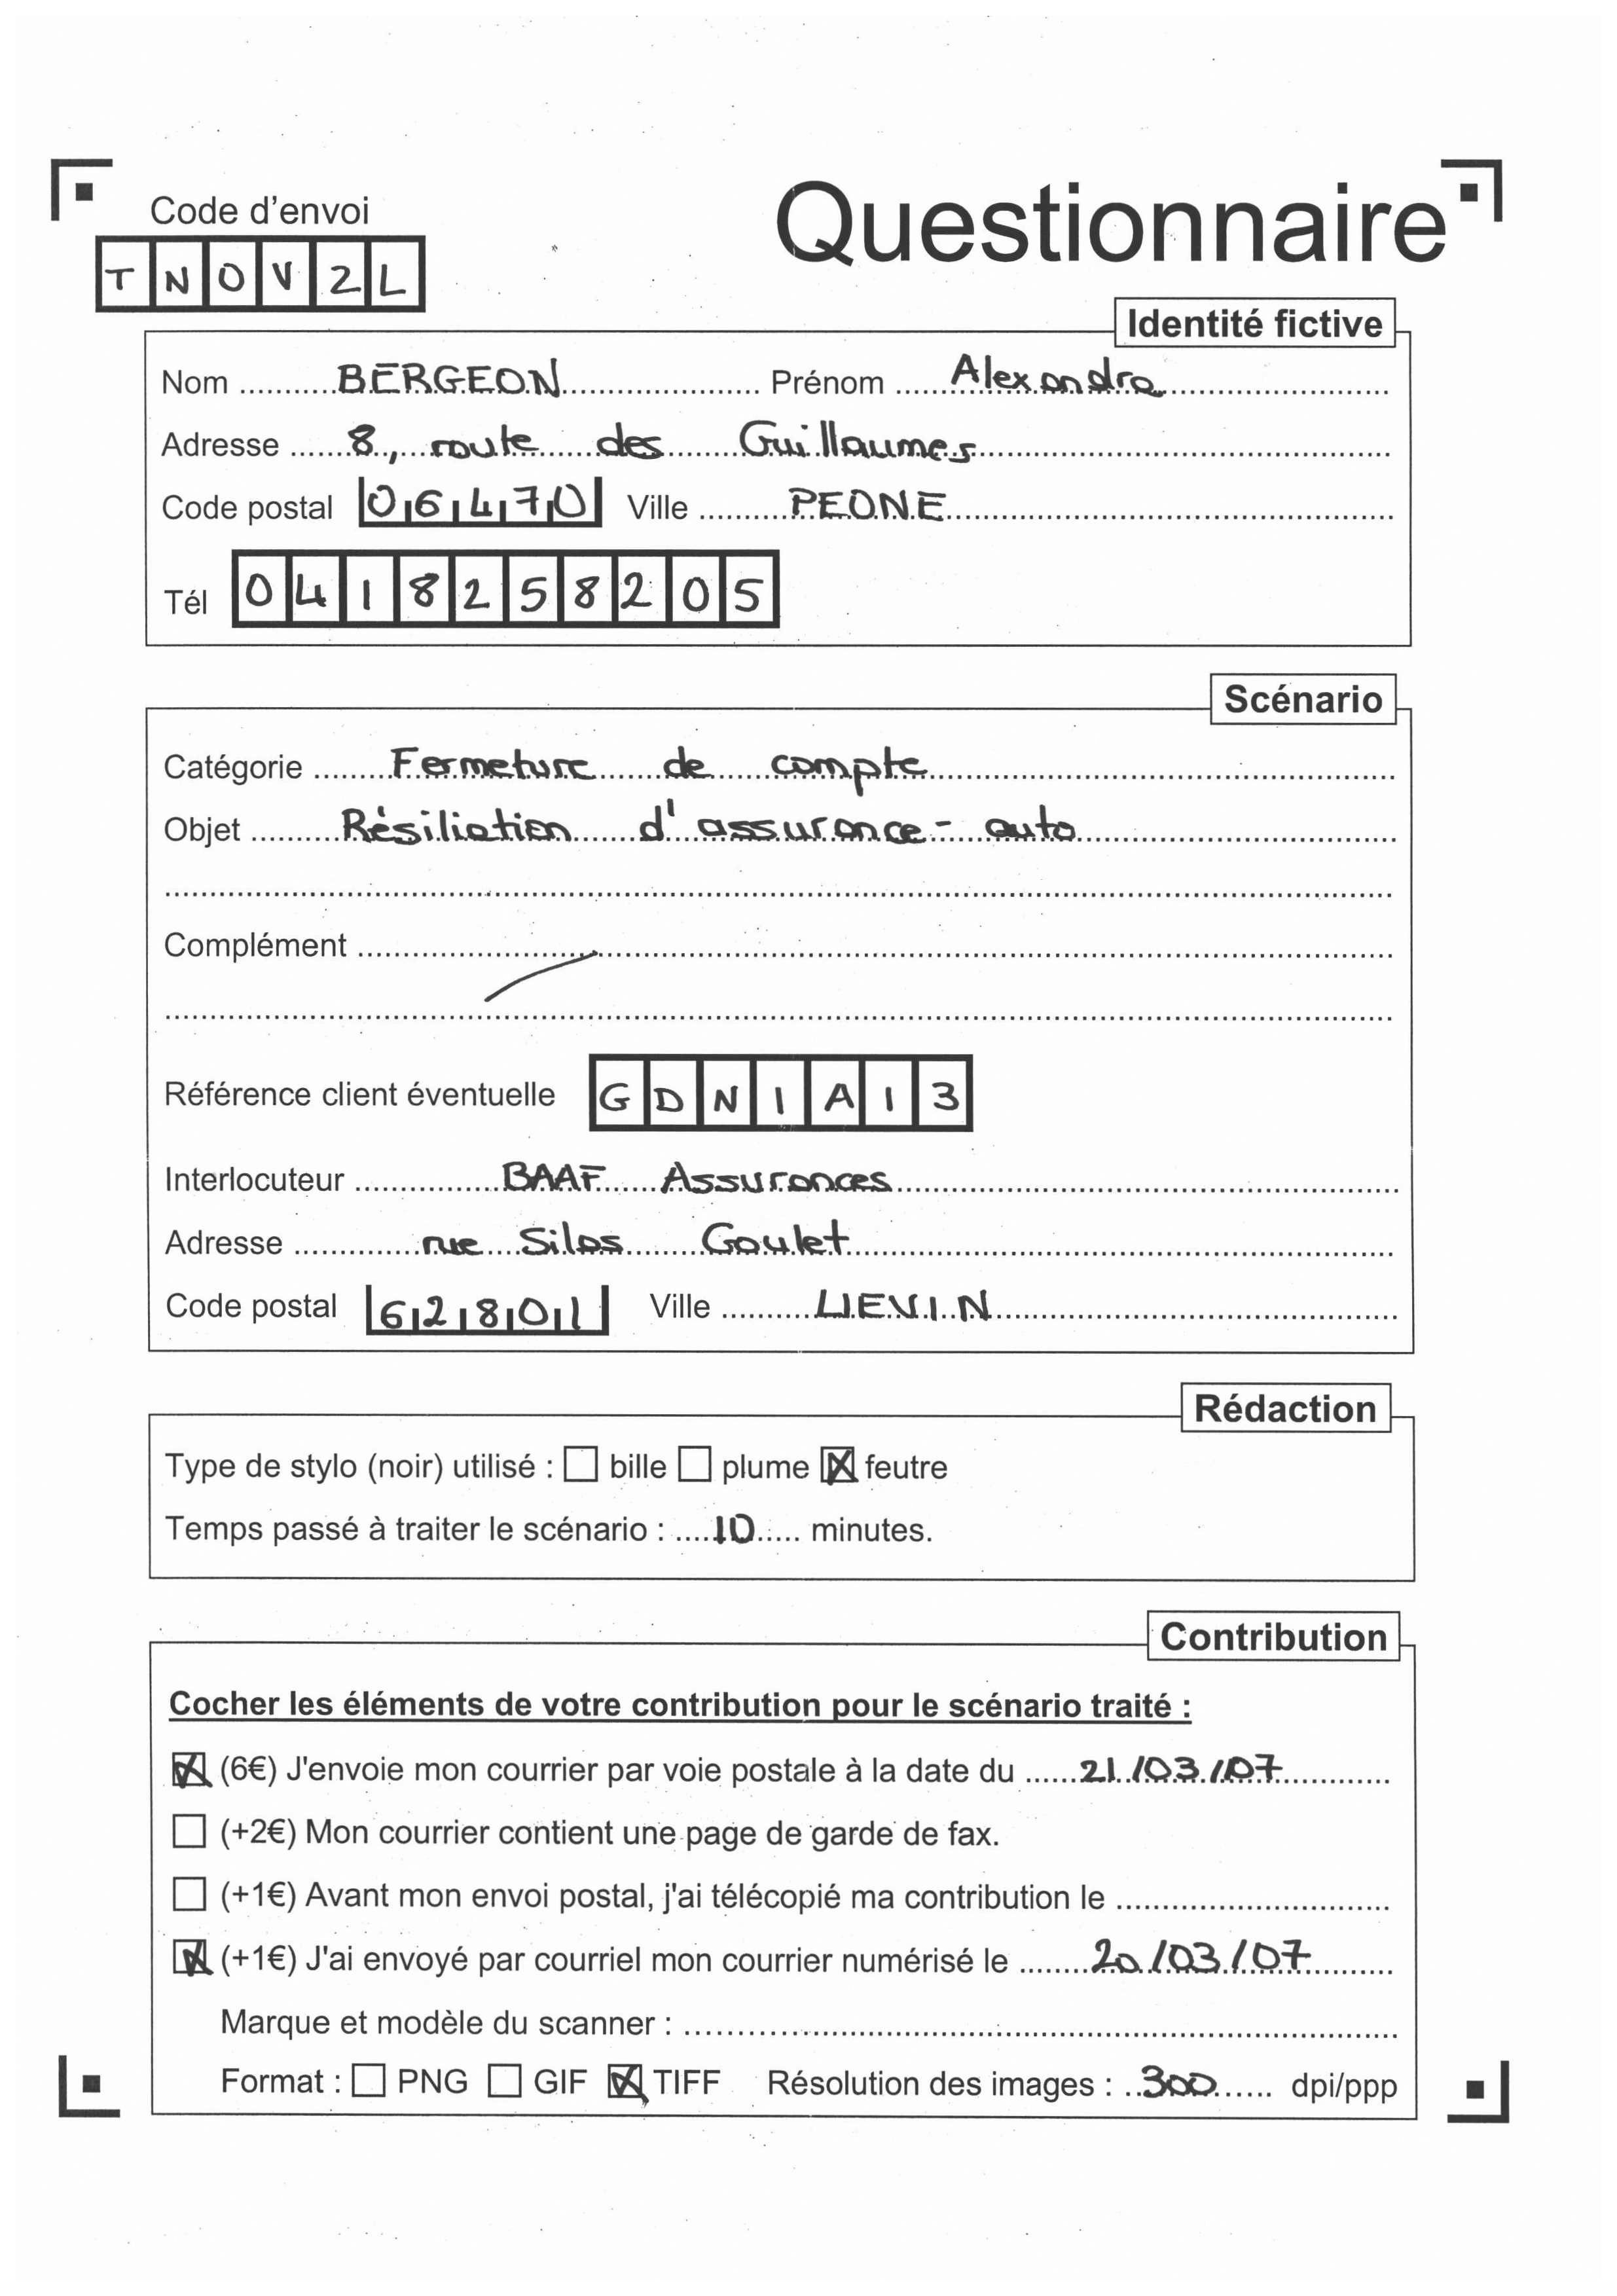 Code d'envoi
Questionnaire
TNOV2L
Identité fictive
Nom BERGEON Prénom Alexandra
Adresse 8, route des Guillaumes
Code postal 06470 Ville PEONE
Tél 0418258205
Scénario
Catégorie Fermeture de compte
Objet Résiliation d'assurance-auto
Complément
Référence client éventuelle GDN1A13
Interlocuteur BAAF Assurances
Adresse rue Silas Goulet
Code postal 62801 Ville LIEVIN
Rédaction
Type de stylo (noir) utilisé : bille plume feutre
Temps passé à traiter le scénario : 10 minutes.
Contribution
Cocher les éléments de votre contribution pour le scénario traité :
(6€) J'envoie mon courrier par voie postale à la date du 21/03/07
(+2€) Mon courrier contient une page de garde de fax.
(+1€) Avant mon envoi postal, j'ai télécopié ma contribution le
(+1€) J'ai envoyé par courriel mon courrier numérisé le 20/03/07
Marque et modèle du scanner :
Format : PNG GIF TIFF Résolution des images : 300 dpi/ppp